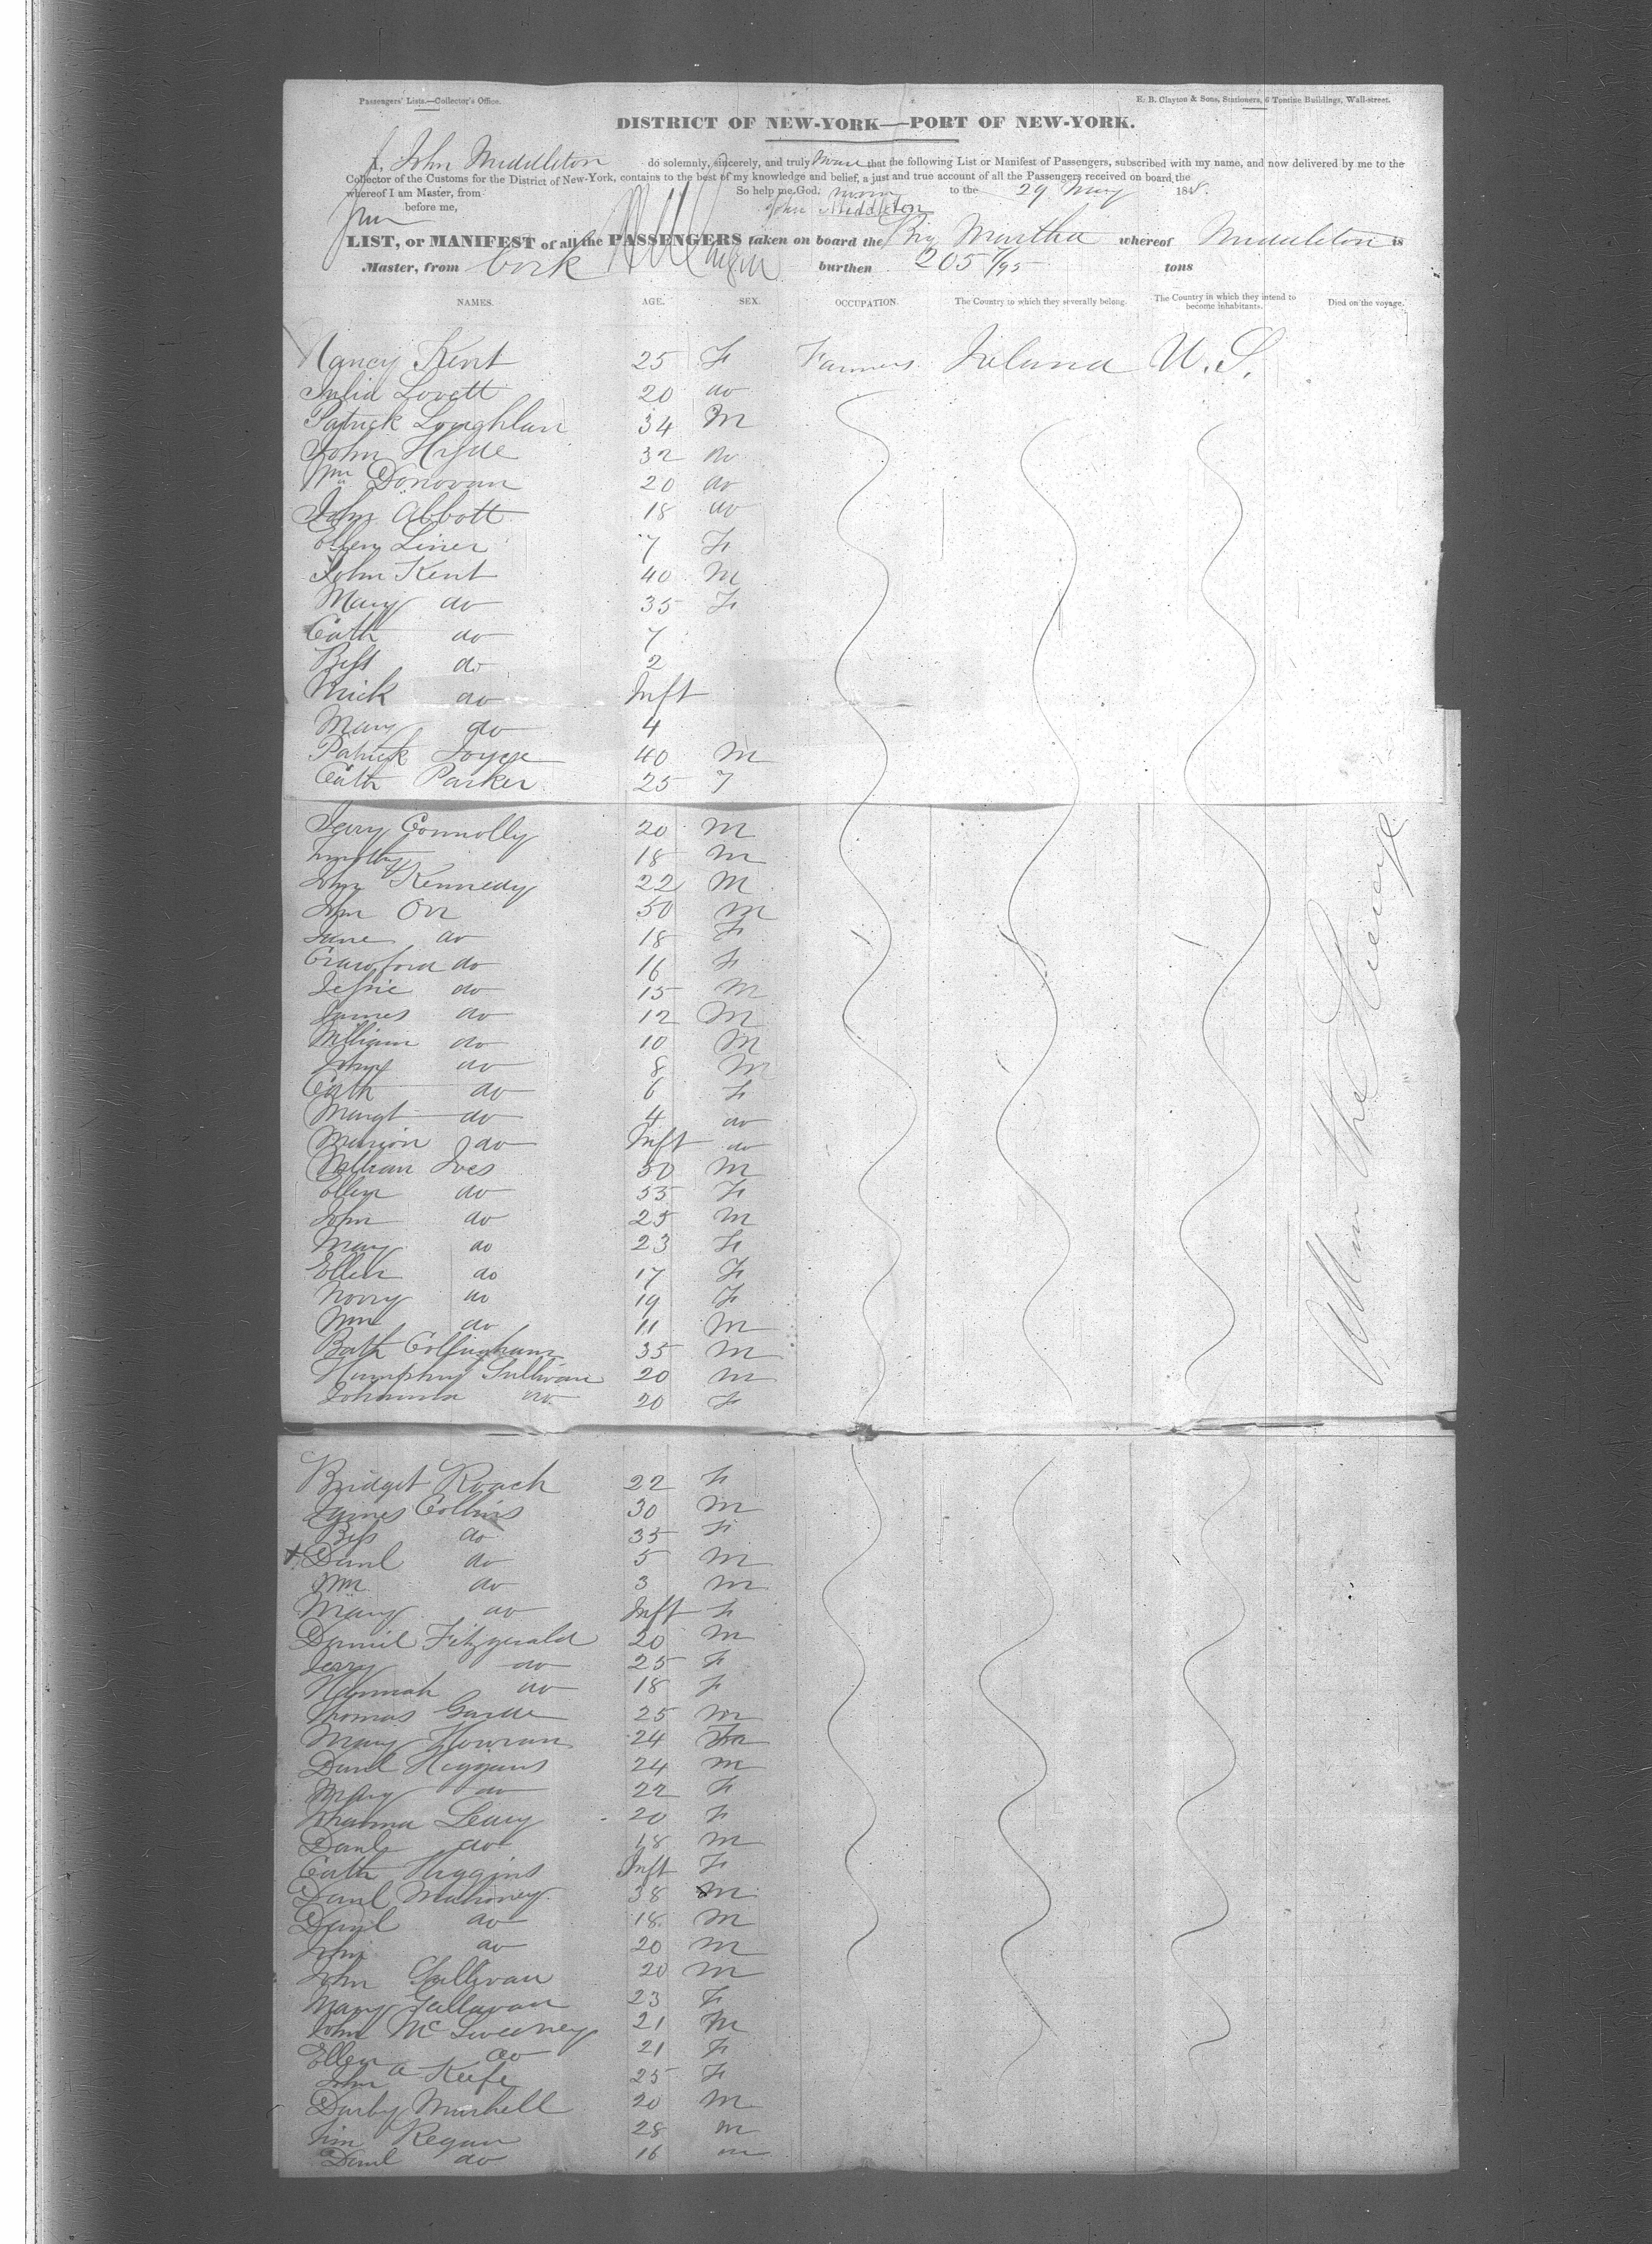 Passengers' Lists.—Collector's Office.
E. B. Clayton & Sons, Stationers, 6 Tontine Buildings, Wall-street.
DISTRICT OF NEW-YORK—PORT OF NEW-YORK.
I, John Middleton do solemnly, sincerely, and truly swear that the following List or Manifest of Passengers, subscribed with my name, and now delivered by me to the
Collector of the Customs for the District of New-York, contains to the best of my knowledge and belief, a just and true account of all the Passengers received on board the
whereof I am Master, from So help me God. to the 29 May 1848.
before me, John Middleton
LIST, or MANIFEST of all the PASSENGERS taken on board the Brig Martha whereof Middleton is
Master, from Cork burthen 205 7/95 tons
NAMES. AGE. SEX. OCCUPATION. The Country to which they severally belong. The Country in which they intend to become inhabitants. Died on the voyage.
Nancy Kent 25 F Farmers Ireland U.S.
Julia Lovett 20 do
Patrick Loughlan 34 M
John Hyde 32 do
Wm Donovan 20 do
John Abbott 18 do
Ellen Liner 7 F
John Kent 40 M
Mary do 35 F
Cath do 7
Bess do 2
Mick do Inft
Mary do 4
Patrick Joyce 40 M
Cath Parker 25 F
Jerry Connolly 20 M
Timothy 18 M
John Kennedy 22 M
John Orr 50 M
Jane do 18 F
Crawford do 16 F
Jessie do 15 M
James do 12 M
William do 10 M
John do 8 M
Cath do 6 F
Margt do 4 do
Marion do Inft do
William Ives 50 M
Ellen do 55 F
John do 25 M
Mary do 23 F
Ellen do 17 F
Norry do 19 F
Wm do 11 M
Bath Collingham 35 M
Humphry Sullivan 20 M
Johanna do 20 F
Bridget Roach 22 F
James Collins 30 M
Bess do 35 F
+ Danl do 5 M
Wm do 3 M
Mary do Inft F
Daniel Fitzgerald 20 M
Jerry do 25 F
Hannah do 18 F
Thomas Garde 25 M
Mary 24
Danl Higgins 24 M
Mary do 22 F
Johanna Leary 20 F
Danl do 18 M
Cath Higgins Inft F
Danl Mahoney 38 M
Danl do 18 M
John do 20 M
John Sullivan 20 M
Mary Gallavan 23 F
John McSweeney 21 M
Ellen do 21 F
John O Keefe 25 F
Darby Murhell 20 M
Tim Regan 28 M
Danl do 16 M
All in the Steerage